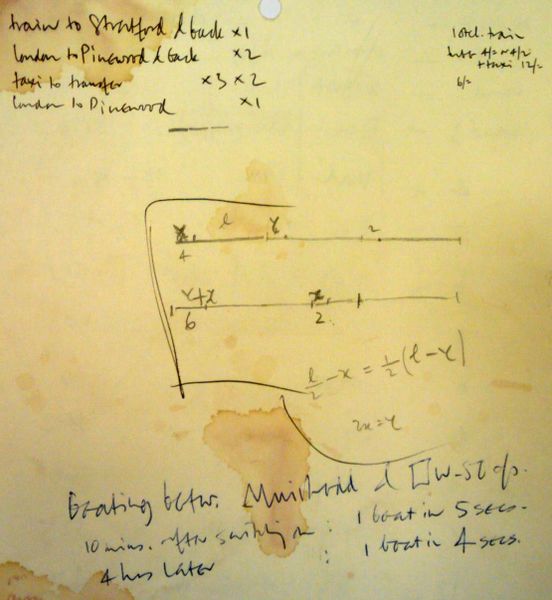 train to Stratford & back ×1
London to Pinewood & back ×2
taxi to transfer ×3 ×2
London to Pinewood ×1
train
4/= 4/2
+ taxi 12/=
6/=
l
4
2
6
2
l/2 - x = 1/2 (l - y)
2x = y
beating betw.
10 mins. after switching on : 1 beat in 5 secs.
4 hrs later : 1 beat in 4 secs.